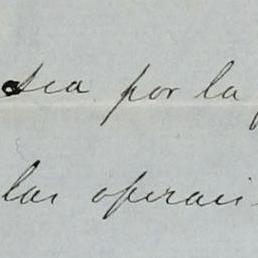 sea por la
las operaci